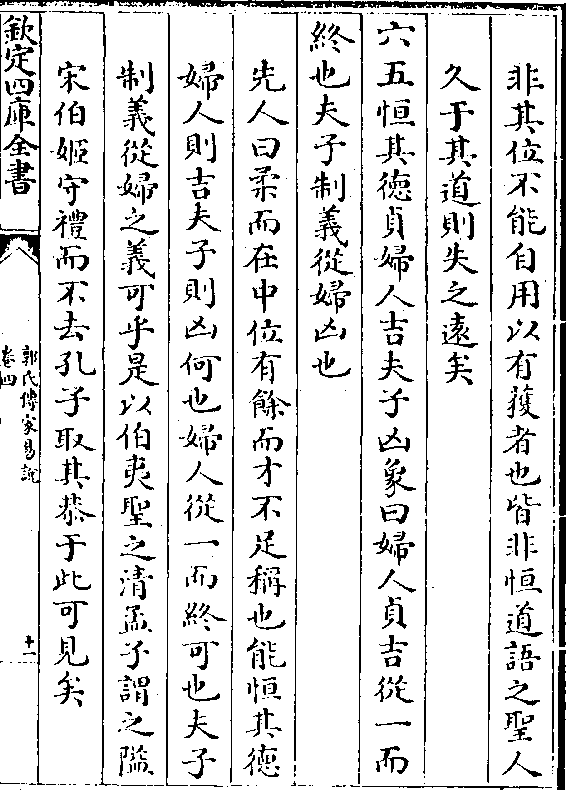 非其位不能自用以有獲者也皆非恒道語之聖人
久于其道則失之遠矣
六五恒其德貞婦人吉夫子凶象曰婦人貞吉從一而
終也夫子制義從婦凶也
先人曰柔而在中位有餘而才不足稱也能恒其德
婦人則吉夫子則凶何也婦人從一而終可也夫子
制義從婦之義可乎是以伯夷聖之清孟子謂之隘
宋伯姬守禮而不去孔子取其恭于此可見矣
欽定四庫全書
郭氏傳家易說
卷四
十一